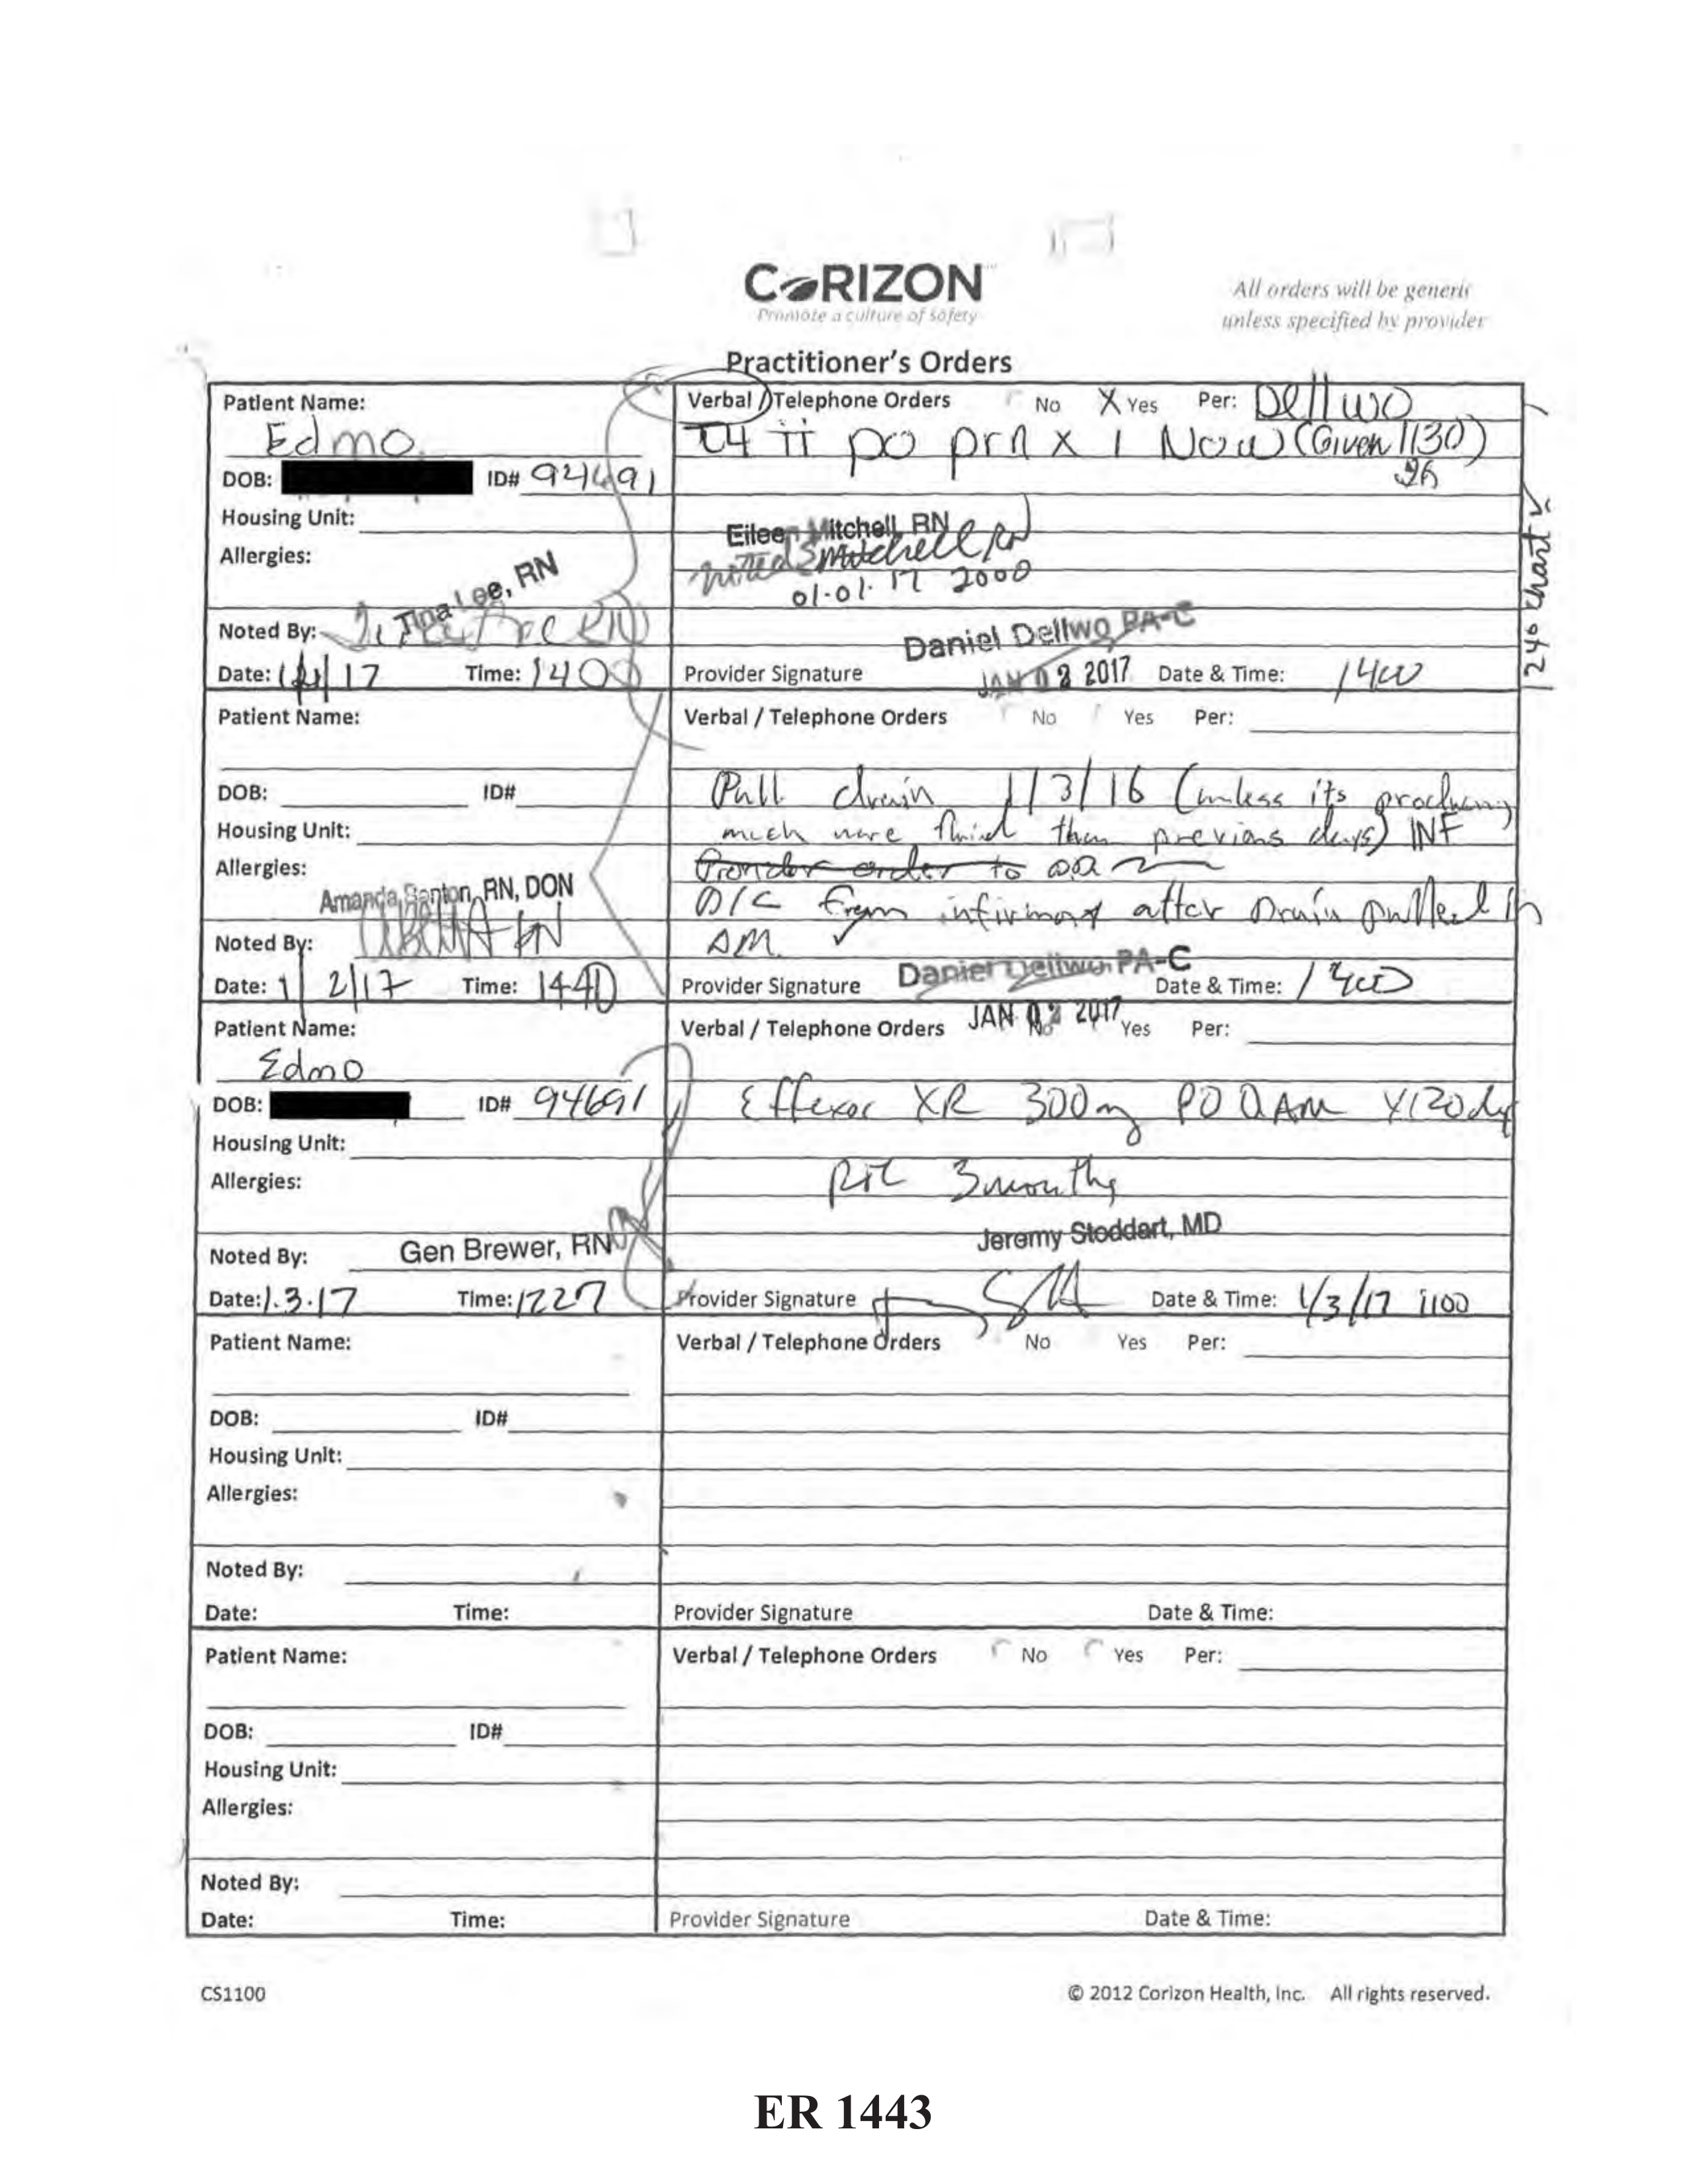 CORIZON
Promote a culture of safety
All orders will be generic
unless specified by provider
Practitioner's Orders
Patient Name:
Edmo
DOB: ID# 94691
Housing Unit:
Allergies:
Tina Lee, RN
Noted By: RN
Date: 17 Time: 1400
Verbal / Telephone Orders No X Yes Per: Dellwo
T4 ii po prn x 1 Now (Given 1130)
Eileen Mitchell, RN
noted EMitchell RN
01.01.17 2000
Daniel Dellwo PA-C
Provider Signature JAN 02 2017 Date & Time: 1400
240 chart
Patient Name:
DOB: ID#
Housing Unit:
Allergies:
Amanda RN, DON
Noted By: RN
Date: 1/2/17 Time: 1440
Verbal / Telephone Orders No Yes Per:
Pull drain 1/3/16 (unless its producing
much more fluid than previous days) INF
order to
D/C from infirmary after Drain pulled in
AM.
Daniel Dellwo PA-C
Provider Signature Date & Time: 1400
JAN 02 2017
Patient Name:
Edmo
DOB: ID# 94691
Housing Unit:
Allergies:
Noted By: Gen Brewer, RN
Date: 1.3.17 Time: 1227
Verbal / Telephone Orders No Yes Per:
Effexor XR 300mg PO QAM X120dy
RTC 3 months
Jeremy Stoddart, MD
Provider Signature Date & Time: 1/3/17 1100
Patient Name:
DOB: ID#
Housing Unit:
Allergies:
Noted By:
Date: Time:
Verbal / Telephone Orders No Yes Per:
Provider Signature Date & Time:
Patient Name:
DOB: ID#
Housing Unit:
Allergies:
Noted By:
Date: Time:
Verbal / Telephone Orders No Yes Per:
Provider Signature Date & Time:
CS1100
© 2012 Corizon Health, Inc. All rights reserved.
ER 1443